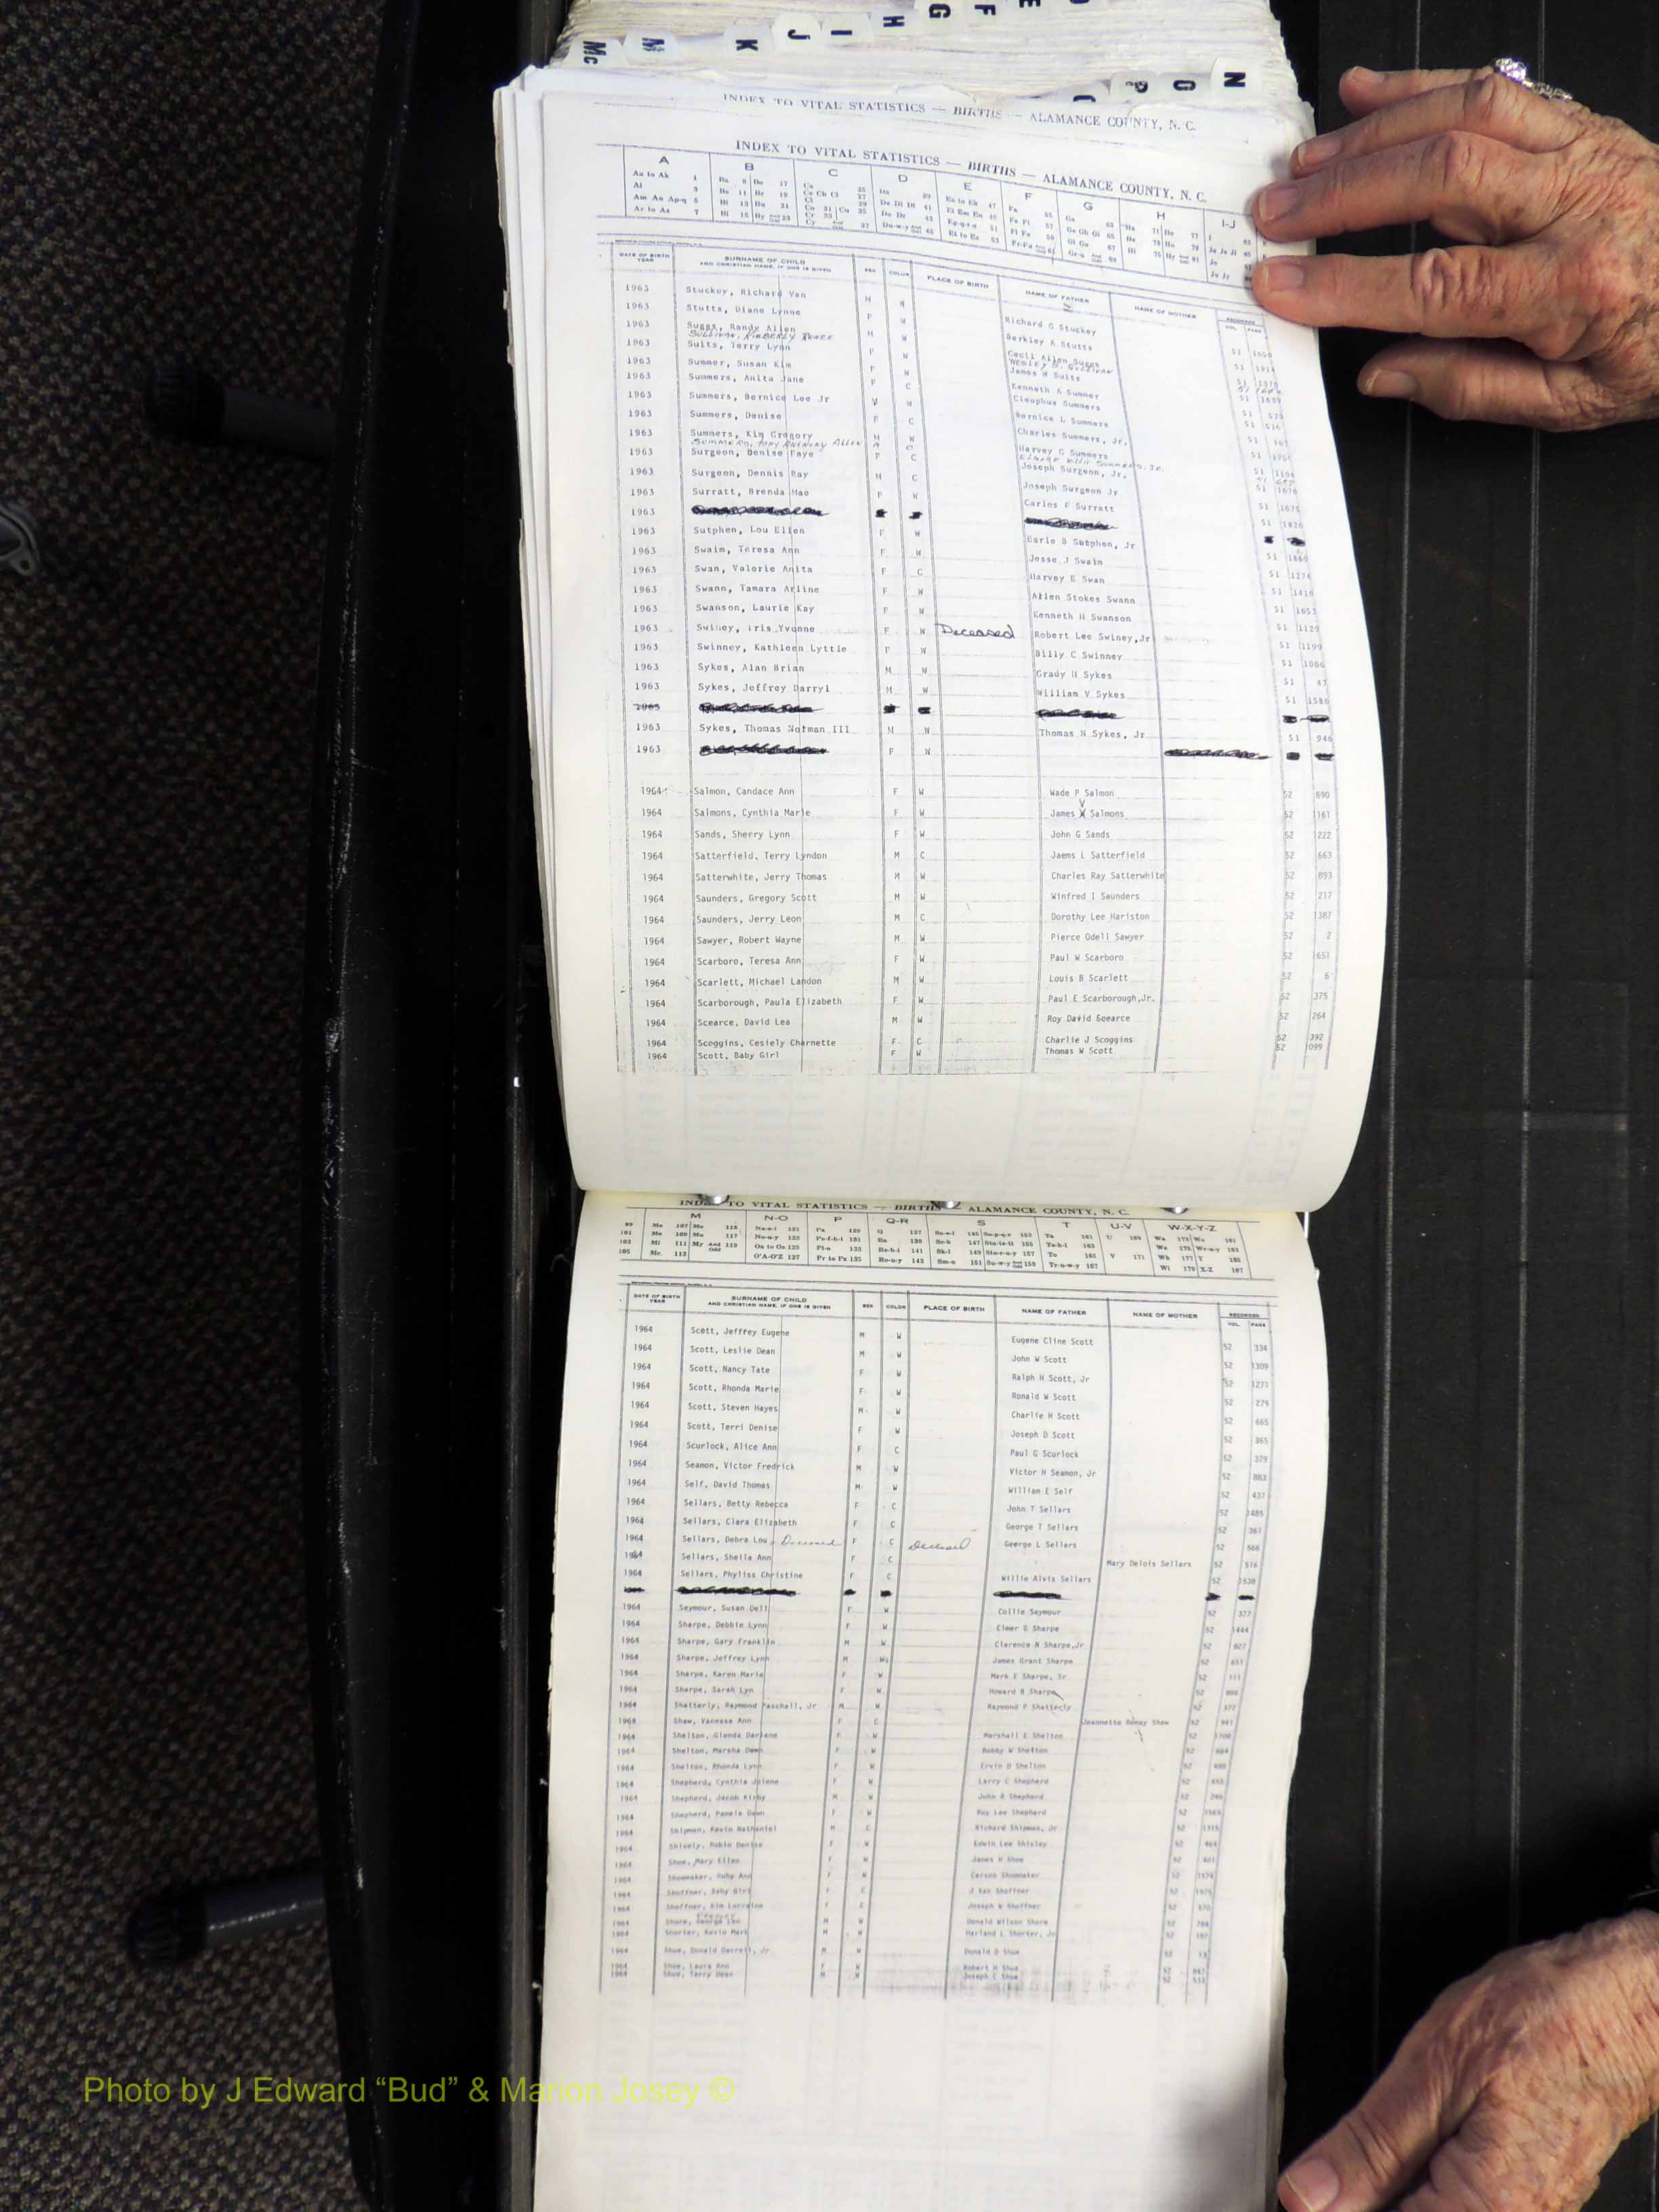 G F E
Mc M K J I H
P O N
INDEX TO VITAL STATISTICS — BIRTHS — ALAMANCE COUNTY, N. C.
INDEX TO VITAL STATISTICS — BIRTHS — ALAMANCE COUNTY, N. C.
A B C D E F G H I-J
DATE OF BIRTH YEAR SURNAME OF CHILD AND CHRISTIAN NAME, IF ONE IS GIVEN SEX COLOR PLACE OF BIRTH NAME OF FATHER NAME OF MOTHER RECORDED VOL. PAGE
1963 Stuckey, Richard Van M W Richard G Stuckey 51 1650
1963 Stutts, Diane Lynne F W Berkley A Stutts 51 1914
1963 Suggs, Randy Allen M W Cecil Allen Suggs 51 1370
SULLIVAN, KIMBERLY RENEE WESLEY SULLIVAN
1963 Suits, Terry Lynn F W James W Suits 51 1689
1963 Summer, Susan Kim F W Kenneth A Summer 51 529
1963 Summers, Anita Jane F C Cleophus Summers 51 516
1963 Summers, Bernice Lee Jr W Bernice L Summers 51 167
1963 Summers, Denise F C Charles Summers, Jr. 51
1963 Summers, Kim Gregory M W Harvey G Summers 51 1194
SUMMERS, TONY ANTHONY ALLEN M C 51
1963 Surgeon, Denise Faye F C Joseph Surgeon, Jr. 51 1676
1963 Surgeon, Dennis Ray M C Joseph Surgeon Jr 51 1675
1963 Surratt, Brenda Mae F W Carlos F Surratt 51 1826
1963
1963 Sutphen, Lou Ellen F W Earle B Sutphen, Jr 51 1860
1963 Swaim, Teresa Ann F W Jesse J Swaim 51 1274
1963 Swan, Valorie Anita F C Harvey E Swan 51 1410
1963 Swann, Tamara Arline F W Allen Stokes Swann 51 1053
1963 Swanson, Laurie Kay F W Kenneth H Swanson 51 1129
1963 Swiney, Iris Yvonne F W Deceased Robert Lee Swiney,Jr 51 1199
1963 Swinney, Kathleen Lyttle F W Billy C Swinney 51 1006
1963 Sykes, Alan Brian M W Grady H Sykes 51 47
1963 Sykes, Jeffrey Darryl M W William V Sykes 51 1586
1963 Sykes, Thomas Notman III M W Thomas N Sykes, Jr 51 946
1963 F W
1964 Salmon, Candace Ann F W Wade P Salmon 52 890
1964 Salmons, Cynthia Marie F W James V Salmons 52 1161
1964 Sands, Sherry Lynn F W John G Sands 52 1222
1964 Satterfield, Terry Lyndon M C Jaems L Satterfield 52 663
1964 Satterwhite, Jerry Thomas M W Charles Ray Satterwhite 52 893
1964 Saunders, Gregory Scott M W Winfred I Saunders 52 217
1964 Saunders, Jerry Leon M C Dorothy Lee Hariston 52 1387
1964 Sawyer, Robert Wayne M W Pierce Odell Sawyer 52 2
1964 Scarboro, Teresa Ann F W Paul W Scarboro 52 1651
1964 Scarlett, Michael Landon M W Louis B Scarlett 52 6
1964 Scarborough, Paula Elizabeth F W Paul E Scarborough,Jr. 52 375
1964 Scearce, David Lea M W Roy David Scearce 52 264
1964 Scoggins, Cesiely Charnette F C Charlie J Scoggins 52 392
1964 Scott, Baby Girl F W Thomas W Scott 52 1099
INDEX TO VITAL STATISTICS — BIRTHS — ALAMANCE COUNTY, N. C.
M N-O P Q-R S T U-V W-X-Y-Z
DATE OF BIRTH YEAR SURNAME OF CHILD AND CHRISTIAN NAME, IF ONE IS GIVEN SEX COLOR PLACE OF BIRTH NAME OF FATHER NAME OF MOTHER RECORDED VOL. PAGE
1964 Scott, Jeffrey Eugene M W Eugene Cline Scott 52 334
1964 Scott, Leslie Dean M W John W Scott 52 1309
1964 Scott, Nancy Tate F W Ralph H Scott, Jr 52 1271
1964 Scott, Rhonda Marie F W Ronald W Scott 52 279
1964 Scott, Steven Hayes M W Charlie H Scott 52 665
1964 Scott, Terri Denise F W Joseph D Scott 52 365
1964 Scurlock, Alice Ann F C Paul G Scurlock 52 379
1964 Seamon, Victor Fredrick M W Victor H Seamon, Jr 52 883
1964 Self, David Thomas M W William E Self 52 437
1964 Sellars, Betty Rebecca F C John T Sellars 52 1485
1964 Sellars, Clara Elizabeth F C George T Sellars 52 361
1964 Sellars, Debra Lou Deceased F C Deceased George L Sellars 52 566
1964 Sellars, Sheila Ann F C Mary Delois Sellars 52 516
1964 Sellars, Phyliss Christine F C Willie Alvis Sellars 52 1538
1964 Seymour, Susan Dell F W Collie Seymour 52 377
1964 Sharpe, Debbie Lynn F W Elmer G Sharpe 52 1444
1964 Sharpe, Gary Franklin M W Clarence N Sharpe,Jr 52 827
1964 Sharpe, Jeffrey Lynn M W James Grant Sharpe 52 651
1964 Sharpe, Karen Marie F W Mark E Sharpe, Sr 52 111
1964 Sharpe, Sarah Lyn F W Howard B Sharpe 52
1964 Shatterly, Raymond Paschall, Jr M W Raymond P Shatterly 52 372
1964 Shaw, Vanessa Ann F C Jeannette Remay Shaw 52 941
1964 Shelton, Glenda Darlene F W Marshall E Shelton 52
1964 Shelton, Marsha Dawn F W Bobby W Shelton 52
1964 Shelton, Rhonda Lynn F W Ervin D Shelton 52
1964 Shepherd, Cynthia Jolene F W Larry C Shepherd 52
1964 Shepherd, Jacob Kirby M W John R Shepherd 52
1964 Shepherd, Pamela Dawn F W Roy Lee Shepherd 52
1964 Shipman, Kevin Nathaniel M C Richard Shipman, Jr 52 1315
1964 Shively, Robin Denise F W Edwin Lee Shively 52 464
1964 Shoe, Mary Ellen F W James H Shoe 52
1964 Shoemaker, Ruby Ann F W Carson Shoemaker 52 1574
1964 Shoffner, Baby Girl F C J Van Shoffner 52
1964 Shoffner, Kim Lorraine F C Joseph W Shoffner 52
1964 Shore, George Leo M W Donald Wilson Shore 52
1964 Shorter, Kevin Mark M W Harland L Shorter, Jr 52
1964 Shue, Donald Darrell, Jr M W Donald D Shue 52 13
1964 Shue, Laura Ann F W Robert H Shue 52
1964 Shue, Terry Dean M W Joseph C Shue 52
Photo by J Edward “Bud” & Marion Josey ©